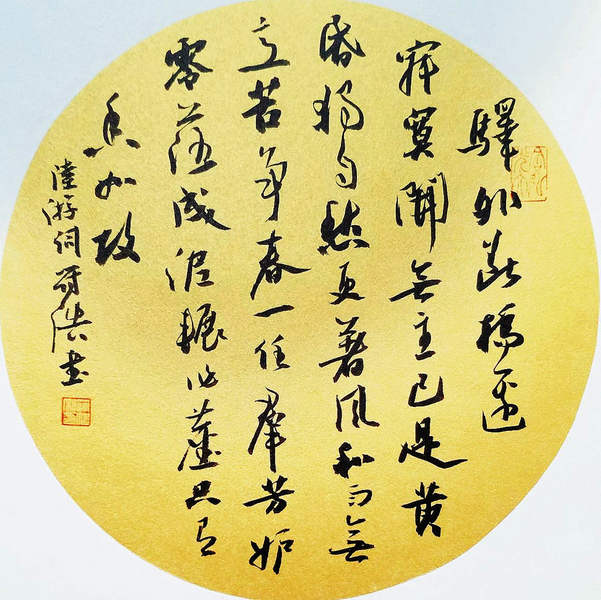 驛外断橋邊
寂寞開無主已是黄
昏獨自愁更著风和雨無
意苦争春一任羣芳妒
零落成泥輾作塵只有
香如故
陸游詞 浩书